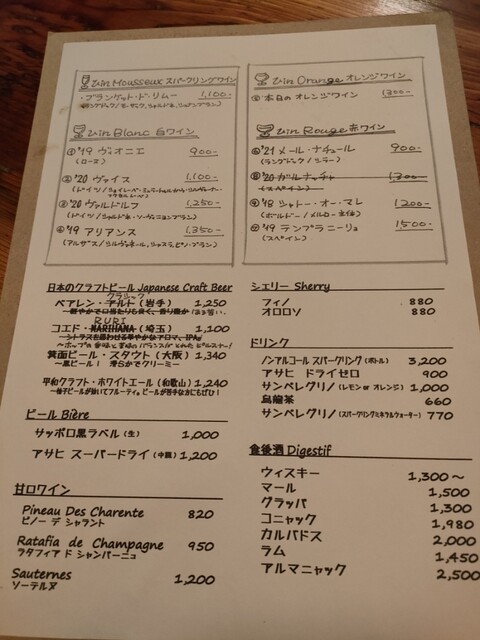 Vin Mousseux スパークリングワイン
・ブランケット・ド・リムー 1,100-
Vin Blanc 白ワイン
① '19 ヴィオニエ 900-
(ローヌ)
② '20 ヴァイス 1,100-
③ '20 ヴァルドルフ 1,250-
④ '19 アリアンス 1,350-
Vin Orange オレンジワイン
本日のオレンジワイン 1300-
Vin Rouge 赤ワイン
'21 メール・ナチュール 900-
(ラングドック/シラー)
'20 ガルナッチャ 1,300-
(スペイン)
'18 シャトー・オー・マレ 1200-
(ボルドー/メルロー主体)
'19 テンプラニーリョ 1,500-
(スペイン)
日本のクラフトビール Japanese Craft Beer
クラシック
ベアレン・アルト (岩手) 1,250
RURI
コエド・MARIHANA (埼玉) 1,100
〜シトラスを思わせる華やかなアロマ、IPA〜
〜ホップの苦味と香味のバランスがとれたピルスナー!
箕面ビール・スタウト (大阪) 1,340
〜黒ビール! 滑らかでクリーミー
平和クラフト・ホワイトエール (和歌山) 1,240
〜柚子ピールが効いてフルーティ。ビールが苦手な方にもぜひ!
ビール Bière
サッポロ黒ラベル (生) 1,000
アサヒ スーパードライ (中瓶) 1,200
甘口ワイン
Pineau Des Charente 820
ピノー デ シャラント
Ratafia de Champagne 950
ラタフィア ド シャンパーニュ
Sauternes 1,200
ソーテルヌ
シェリー Sherry
フィノ 880
オロロソ 880
ドリンク
ノンアルコール スパークリング (ボトル) 3,200
アサヒ ドライゼロ 900
サンペレグリノ (レモン or オレンジ) 1,000
烏龍茶 660
サンペレグリノ (スパークリングミネラルウォーター) 770
食後酒 Digestif
ウィスキー 1,300〜
マール 1,500
グラッパ 1,300
コニャック 1,980
カルバドス 2,000
ラム 1,450
アルマニャック 2,500